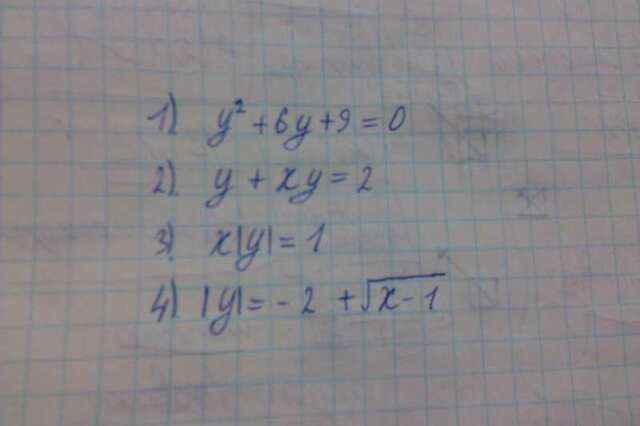 1) y² + 6y + 9 = 0
2) y + xy = 2
3) x|y| = 1
4) |y| = - 2 + √(x - 1)